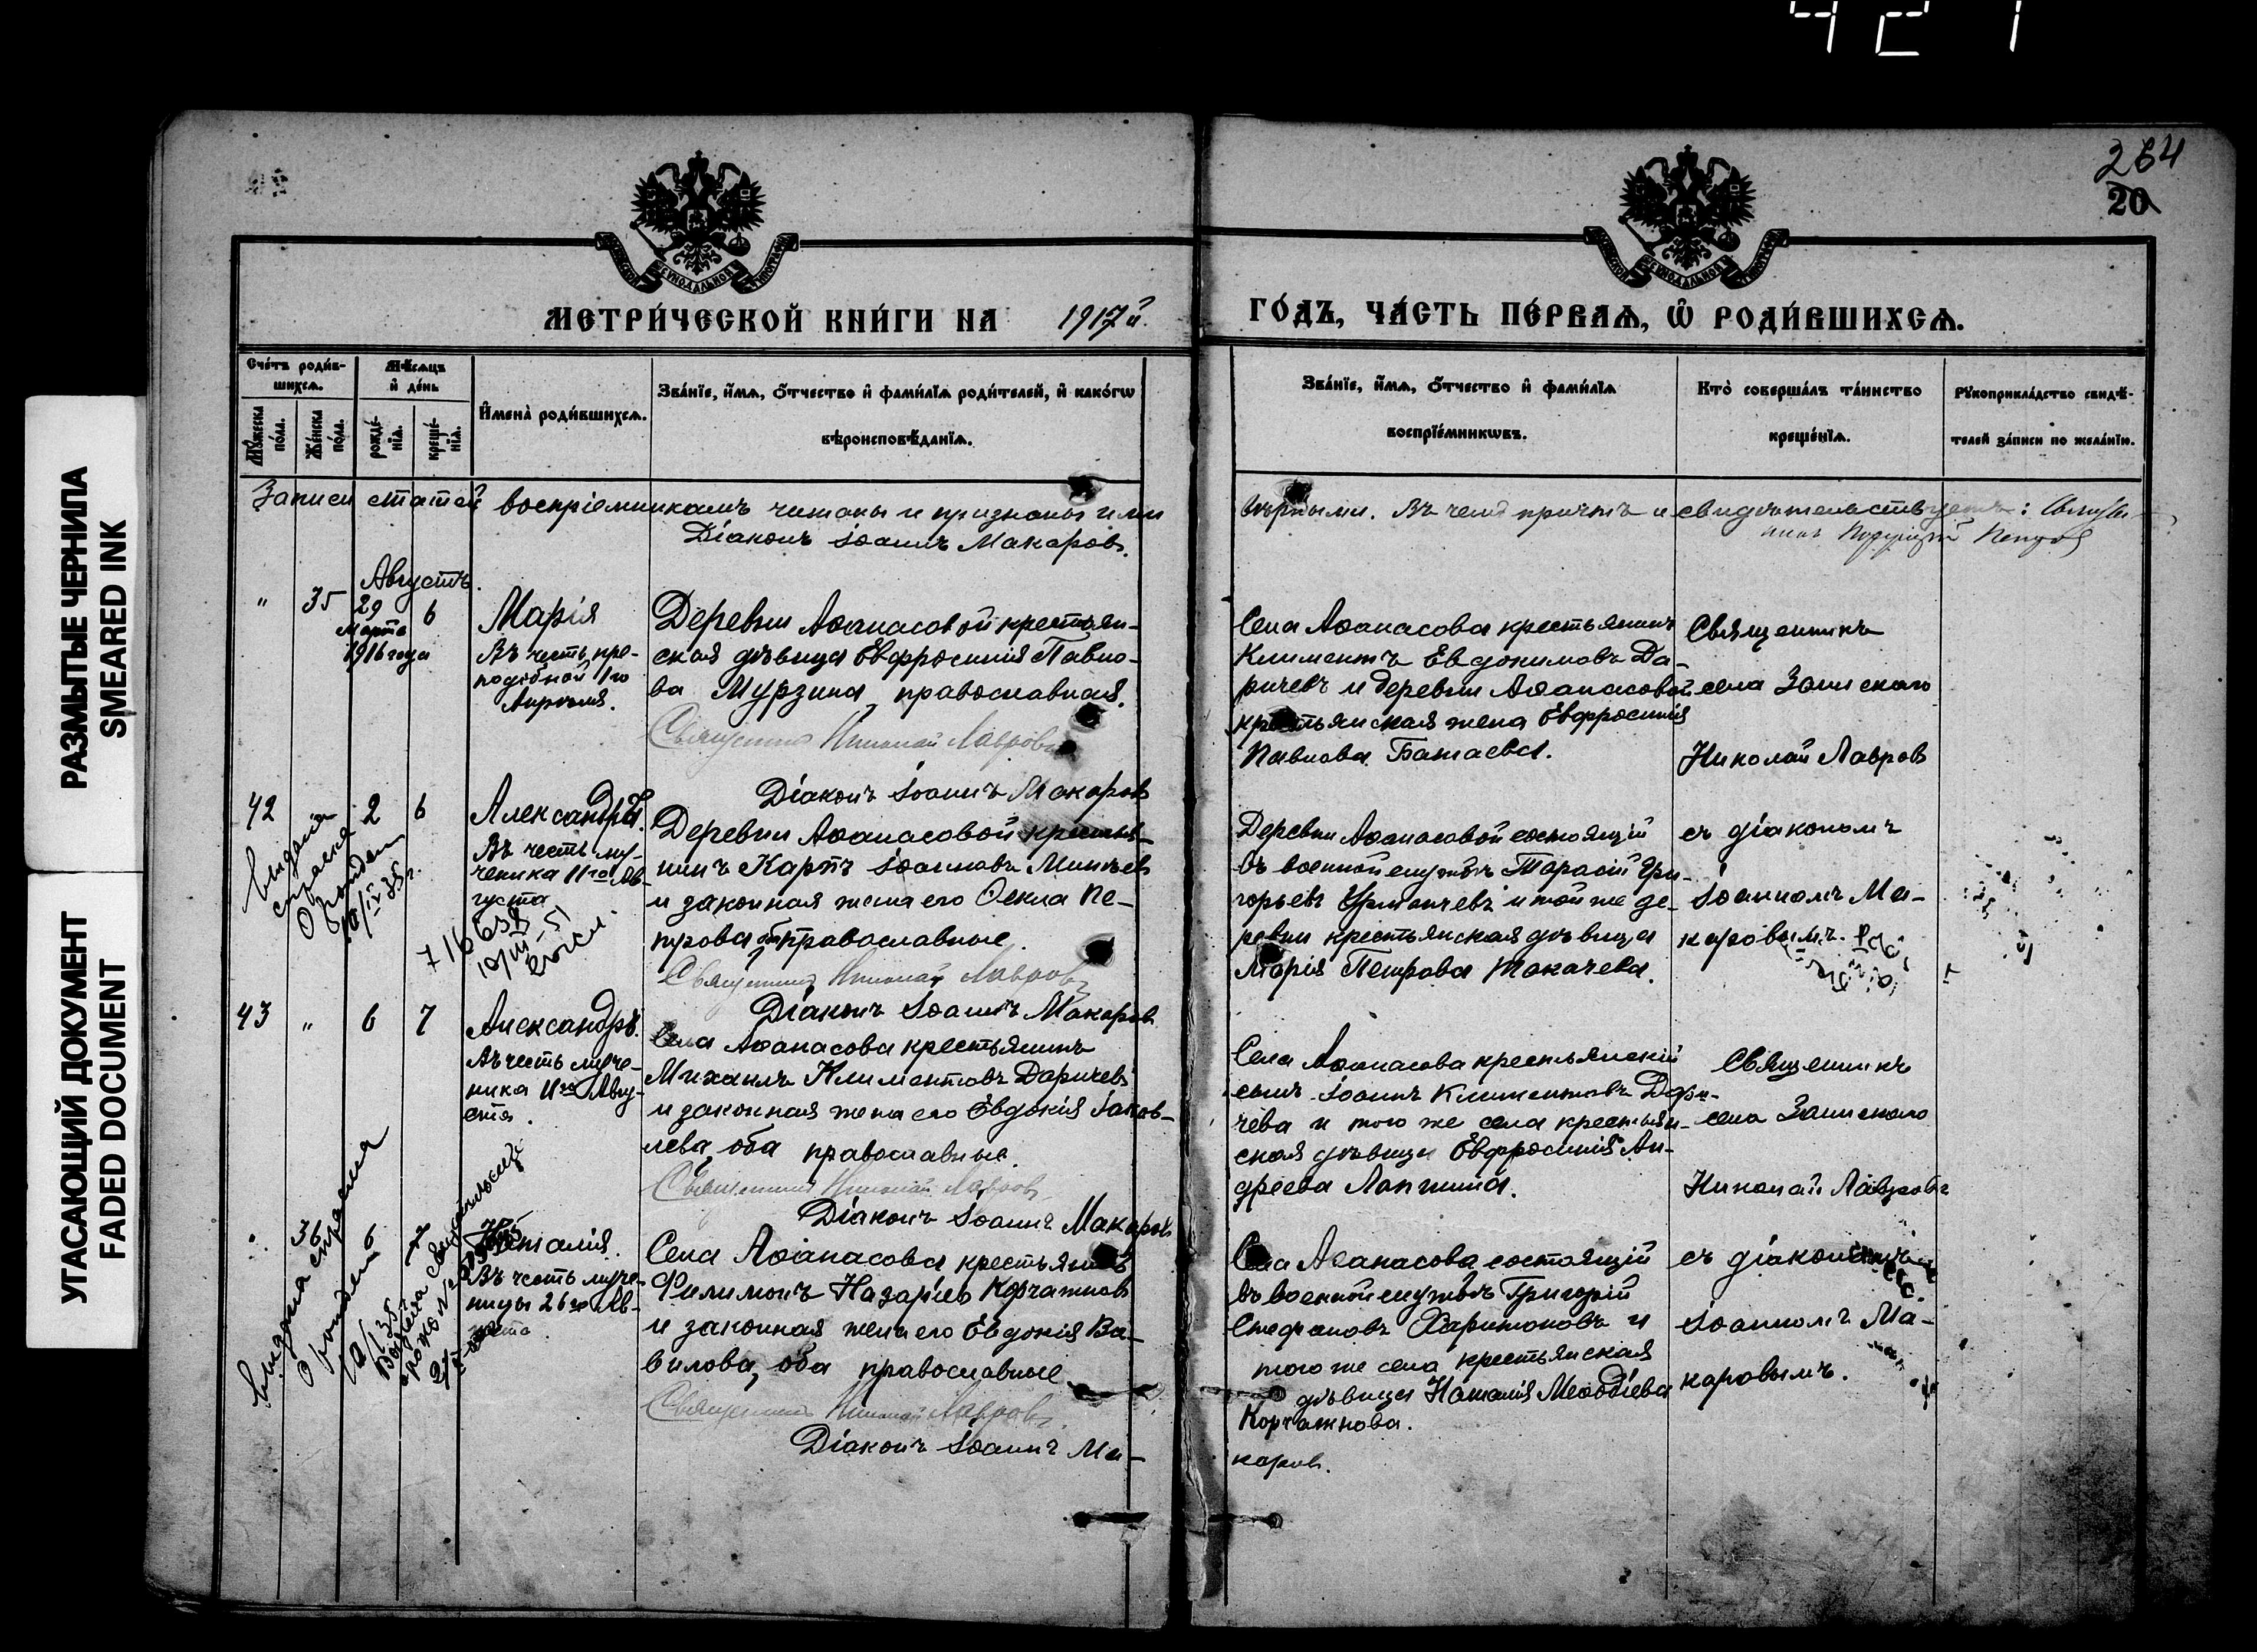 421
264
20
РАЗМЫТЫЕ ЧЕРНИЛА
SMEARED INK
УГАСАЮЩИЙ ДОКУМЕНТ
FADED DOCUMENT
МЕТРИ́ЧЕСКОЙ КНИ́ГИ НА 1917й.
ГО́ДЪ, ЧА́СТЬ ПЕ́РВАѦ, Ѽ РОДИ́ВШИХСѦ.
Сче́тъ роди́в-
шихсѧ.
Мѣ́сѧцъ
и҆ де́нь
Мꙋ́жеска
по́ла.
Же́нска
по́ла.
рожде́-
нїѧ.
креще́-
нїѧ.
И҆мена̀ роди́вшихсѧ.
Зва́нїе, и҆́мѧ, ѻ҆́тчество и҆ фами́лїѧ роди́телей, и҆ како́гѡ
вѣроисповѣ́данїѧ.
Зва́нїе, и҆́мѧ, ѻ҆́тчество и҆ фами́лїѧ
воспрїе́мникѡвъ.
Кто̀ соверша́лъ та́инство
креще́нїѧ.
Рꙋкоприкла́дство свидѣ́-
телей за́писи по жела́нїю.
Записи статей воспріемникамъ читаны и признаны ими
Діаконъ Іоаннъ Макаровъ.
вѣрными. Въ чемъ причтъ и свидѣтельствуетъ:
Августъ.
" 35 29 6
Марта
1916 года
Марія
Въ честь пре-
подобной 1го
Апрѣля.
Деревни Аѳанасовой крестьян-
ская дѣвица Евфросинія Павло-
ва Мурзина, православная.
Священникъ Николай Лавровъ
Діаконъ Іоаннъ Макаровъ
Села Аѳанасова крестьянинъ
Климентъ Евдокимовъ Да-
ричевъ и деревни Аѳанасовой
крестьянская жена Евфросинія
Павлова Батаева.
Священникъ
села
Николай Лавровъ
42 2 6
Александръ.
Въ честь му-
ченика 11го Ав-
густа
Выдана
справка
О рожден
10/IV 35 г.
716638
10/III-51
Деревни Аѳанасовой крестья-
нинъ Карпъ Іоанновъ Минѣевъ
и законная жена его Ѳекла Пе-
трова, оба православные.
Священникъ Николай Лавровъ
Діаконъ Іоаннъ Макаровъ
Деревни Аѳанасовой состоящій
въ военной службѣ Тарасій Гри-
горьевъ и той же де-
ревни крестьянская дѣвица
Марія Петрова Токачева.
съ діакономъ
Іоанномъ Ма-
каровымъ.
43 " 6 7
Александръ.
Въ честь муче-
ника 11го Авгу-
ста.
Села Аѳанасова крестьянинъ
Михаилъ Климентовъ Даричевъ
и законная жена его Евдокія Іаков-
лева, оба православные.
Священникъ Николай Лавровъ
Діаконъ Іоаннъ Макаровъ
Села Аѳанасова крестьянскій
сынъ Іоаннъ Климентовъ Дари-
чева и того же села крестьян-
ская дѣвица Евфросинія Ан-
дреева Лапшина.
Священникъ
села
Николай Лавровъ
36 6 7
Наталія.
Въ честь муче-
ницы 26го Ав-
густа.
Выдана справка
О рождении
Села Аѳанасова крестьянинъ
Филимонъ Назаріевъ Корчажновъ
и законная жена его Евдокія Ва-
вилова, оба православные
Священникъ Николай Лавровъ.
Діаконъ Іоаннъ Ма-
каровъ.
Села Аѳанасова состоящій
въ военной службѣ Григорій
Стефановъ Харитоновъ и
того же села крестьянская
дѣвица Наталія Меѳодіева
Корчажнова.
съ діакономъ
Іоанномъ Ма-
каровымъ.